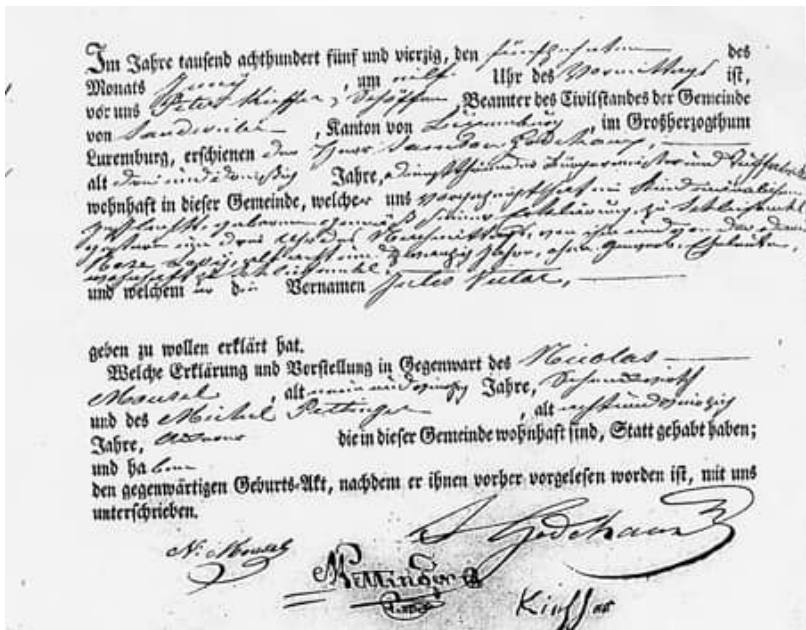 Im Jahre tausend achthundert fünf und vierzig, den fünfzehnten des
Monats Juny, um elf Uhr des Vormittags ist,
vor uns Peter Kieffer, Schöffen Beamter des Civilstandes der Gemeinde
von Sandweiler, Kanton von Luxemburg, im Großherzogthum
Luxemburg, erschienen der Herr Samson Godchaux,
alt drei und dreißig Jahre, Bürgermeister und
wohnhaft in dieser Gemeinde, welcher uns ein Kind männlichen
Geschlechts, geboren seiner Erklärung, zu Schleifmühl
gestern um drei Uhr des Nachmittags, von ihm und von der
alt acht und zwanzig Jahre, ohne Gewerb,
wohnhaft zu Schleifmühl.
und welchem er die Vornamen Jules Victor,
geben zu wollen erklärt hat.
Welche Erklärung und Vorstellung in Gegenwart des Nicolas
Mousel, alt Jahre,
und des Michel Pettinger, alt
Jahre, die in dieser Gemeinde wohnhaft sind, Statt gehabt haben;
und haben
den gegenwärtigen Geburts-Akt, nachdem er ihnen vorher vorgelesen worden ist, mit uns
unterschrieben.
S Godchaux
N. Mousel
Pettinger
Kieffer